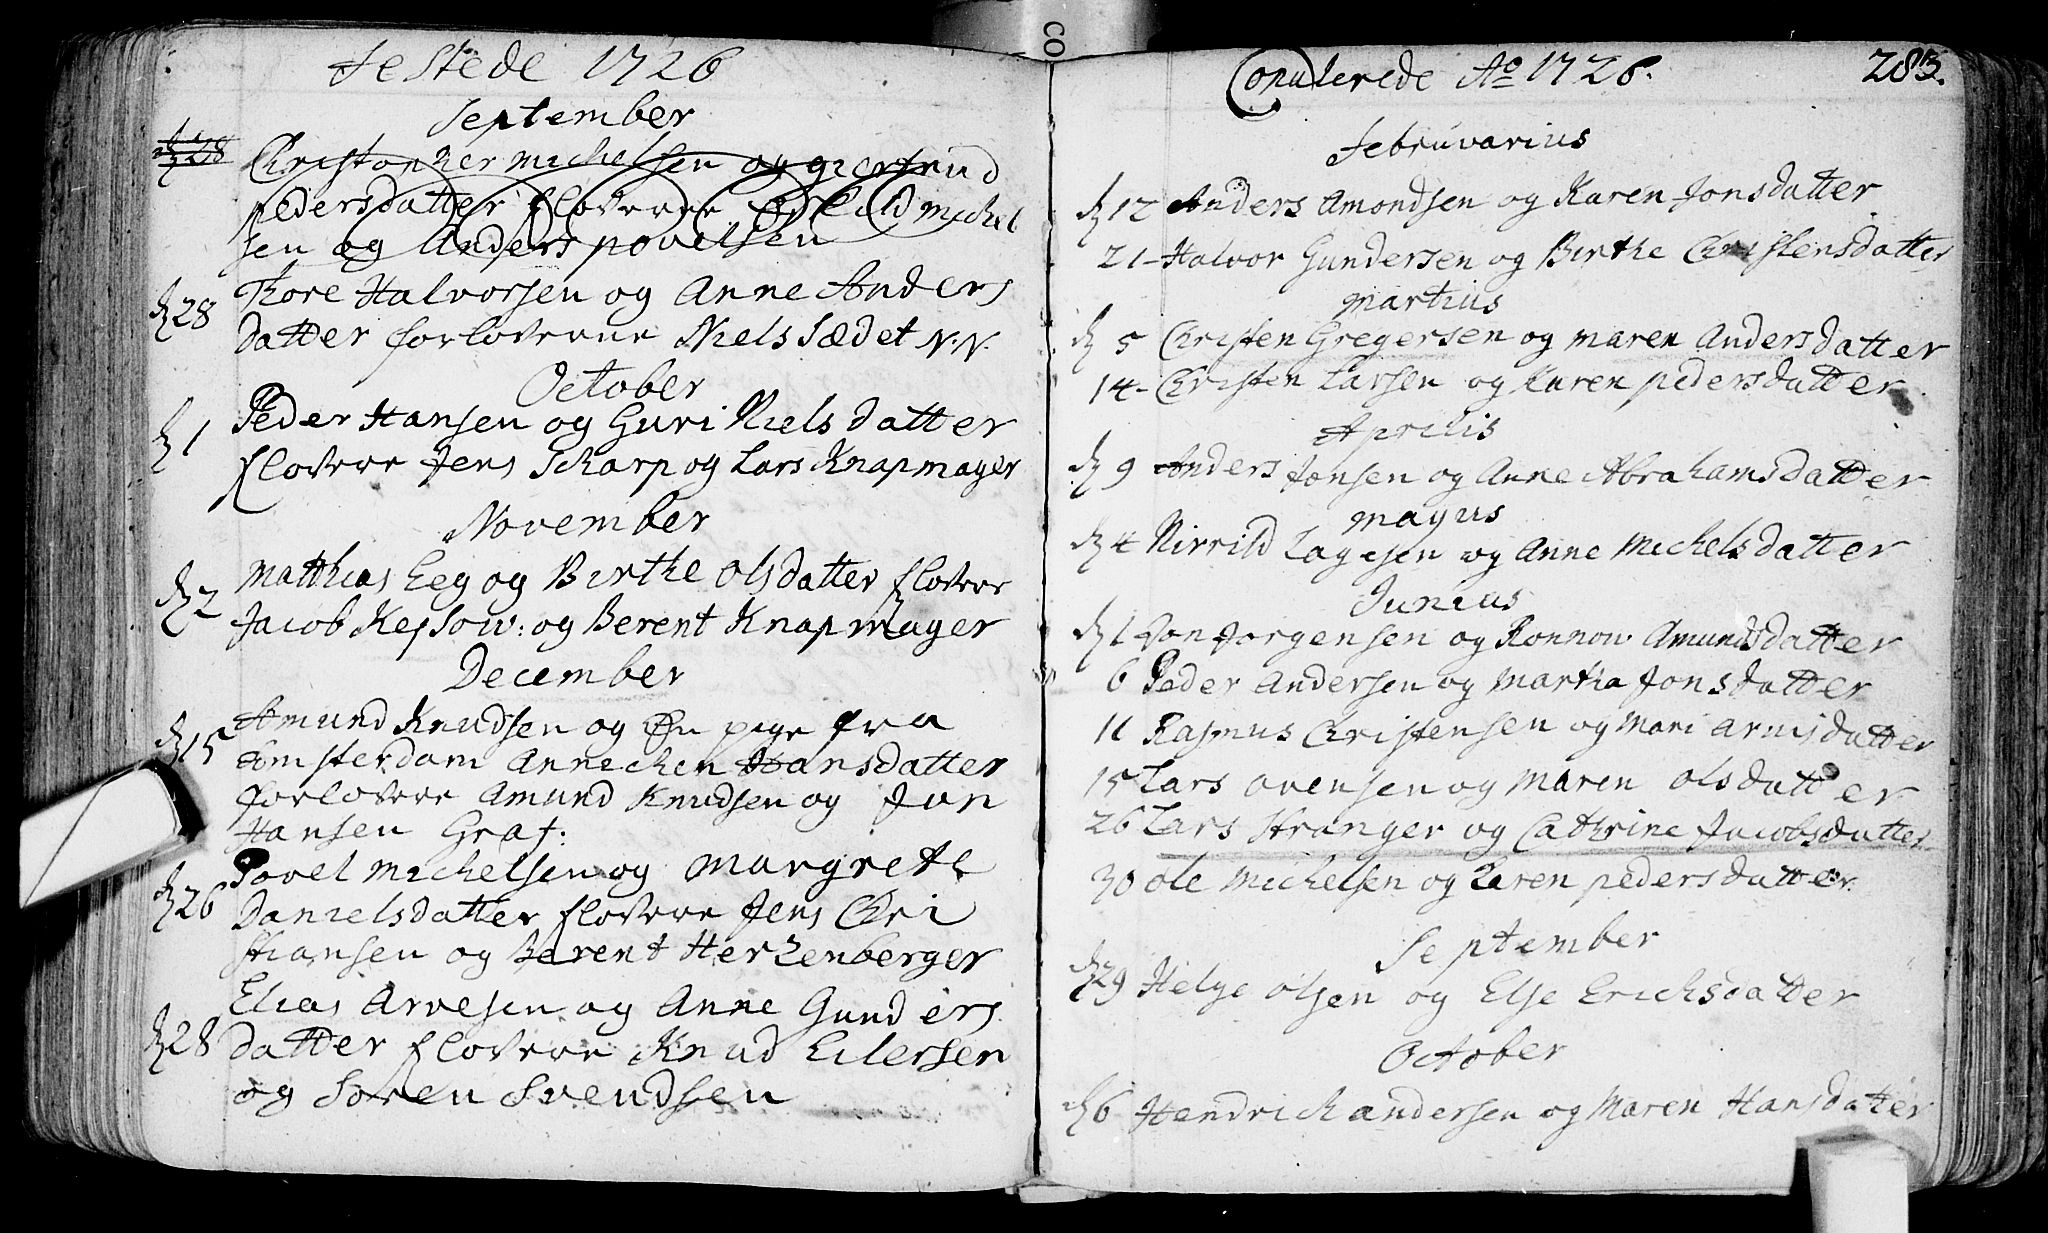 Festede 1726
September
d 28 Christopher Michelsen og giertrud
pedersdatter floverne Eskild Michel
sen og Anders povelsen
d 28 Thore Halvorsen og Anne Anders
datter forloverne Niels Sædet N.N.
October
d 1 Peder Hansen og Guri Niels datter
flovere Jens Scharp og Lars Knapmager
November
d 2 Matthias Eeg og Birthe Olsdatter flovere
Jacob Kessow: og Berent Knapmager
December
d 15 Amund Knudsen og En pige fra
Amsterdam Annichen Hansdatter
forlovere Amund Knudsen og Jan
Hansen Graf:
d 26 Povel Michelsen og Margrete
Danielsdatter flovere Jens Chri
stiansen og Berent Hertzenberger
d 28 Elias Arvesen og Anne Gunders
datter flovere Knud Eilersen
og Soren Svendsen
Copulerede Ao 1726. 283.
Februvarius
d 12 Anders Amondsen og Karen Jonsdatter
21 - Halvor Gundersen og Birthe Christensdatter
Martius
d 5 Christen Gregersen og maren Andersdatter
14 - Christen Larsen og Karen pedersdatter
Aprilis
d 9 Anders Jonsen og Anne Abrahamsdatter
Mayus
d 4 Nirrild Lagesen og Anne Michelsdatter
Junius
d 1 Jon Jorgensen og Ronnow Amundsdatter
6 Peder Andersen og Martha Jonsdatter
11 Rasmus Christensen og Mari Arnisdatter
15 Lars ovensen og Maren olsdatter
26 Lars Stranger og Cathrine Jacobsdatter
30 ole Michelsen og Karen pedersdatter.
September
d 29 Helge olsen og Else Erichsdatter
October
d 6 Hendrich andersen og Maren Hansdatter